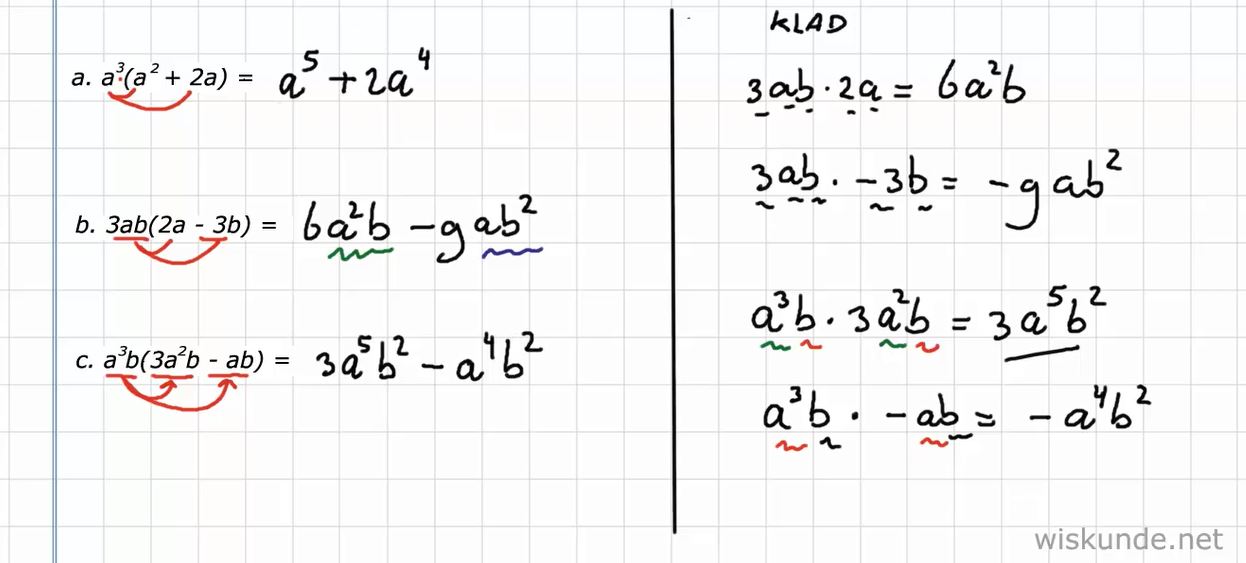 a. a³(a² + 2a) = a⁵ + 2a⁴
b. 3ab(2a - 3b) = 6a²b - 9ab²
c. a³b(3a²b - ab) = 3a⁵b² - a⁴b²
KLAD
3ab · 2a = 6a²b
3ab · -3b = -9ab²
a³b · 3a²b = 3a⁵b²
a³b · -ab = -a⁴b²
wiskunde.net